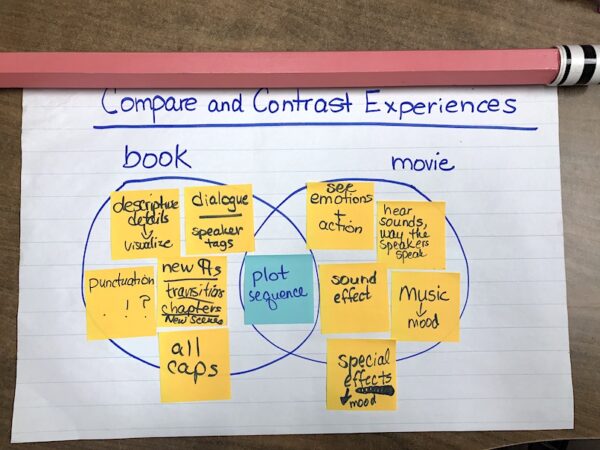 Compare and Contrast Experiences
book
movie
descriptive
details
↓
visualize
dialogue
speaker
tags
punctuation
. ! ?
new ¶s
transitions
chapters
New Scenes
all
caps
plot
sequence
see
emotions
+
action
hear
sounds,
way the
speakers
speak
sound
effect
Music
↓
mood
special
effects
↓ mood